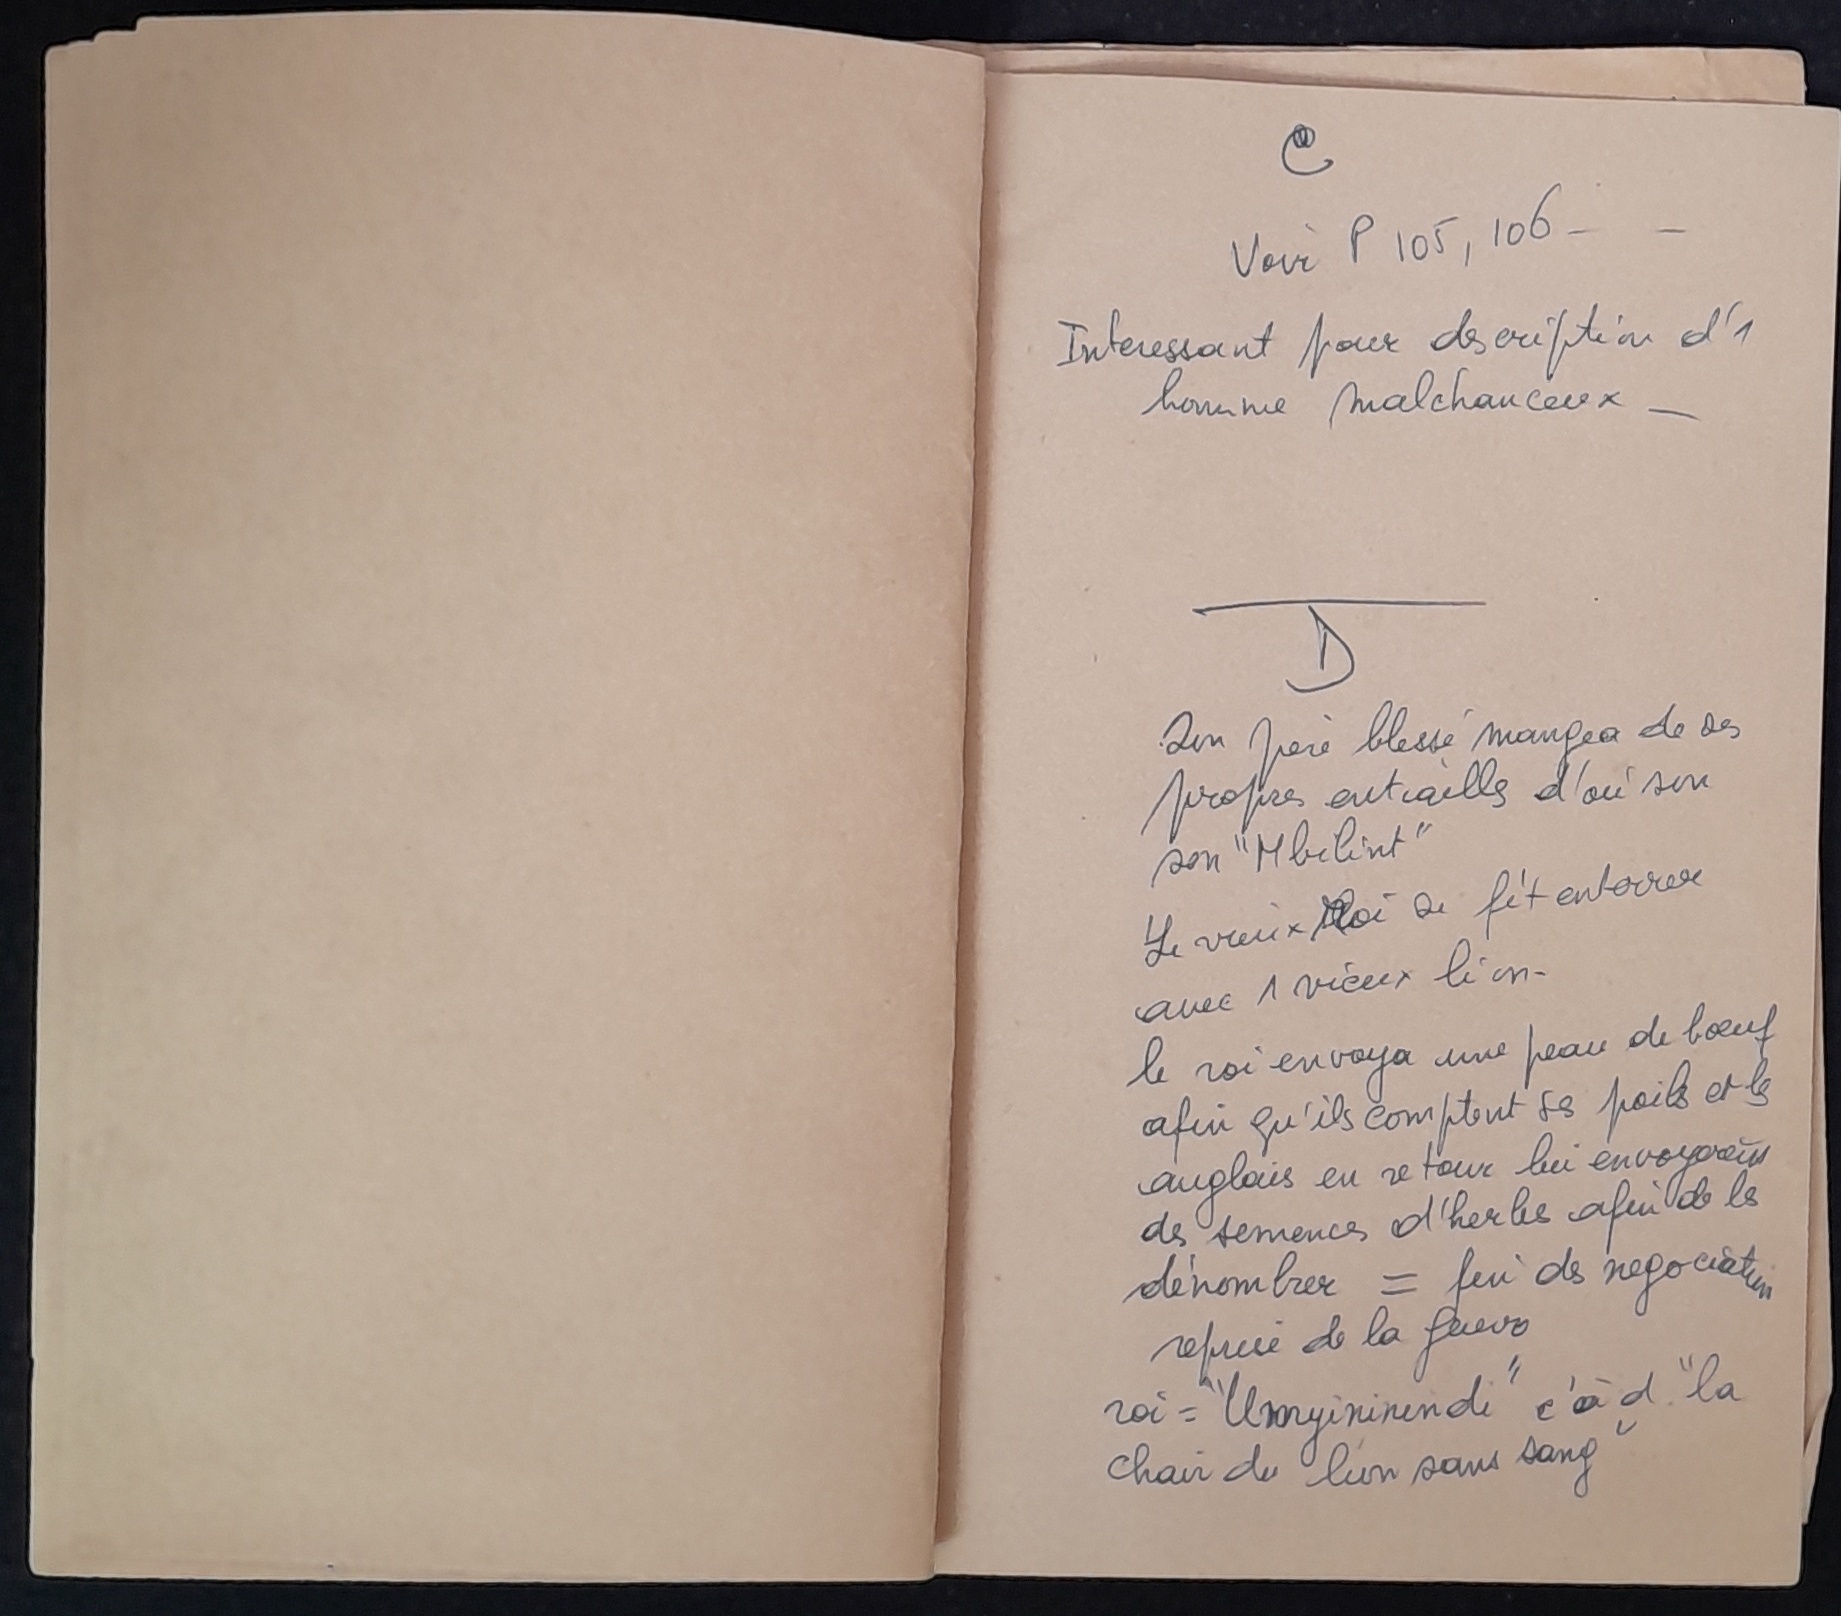 C
Voir P 105, 106 - -
Interessant pour description d'1
homme malchanceux -
D
Son père blessé mangea de ses
propres entrailles d'où son
son "Mbilint"
Le vieux Roi se fit enterrer
avec 1 vieux lion-
le roi envoya une peau de bœuf
afin qu'ils comptent ses poils et les
anglais en retour lui envoyèrent
des semences d'herbes afin de les
dénombrer = fin des negociation
reprise de la guerre
roi = "Umyininendi" c'àd. "la
chair du lion sans sang"